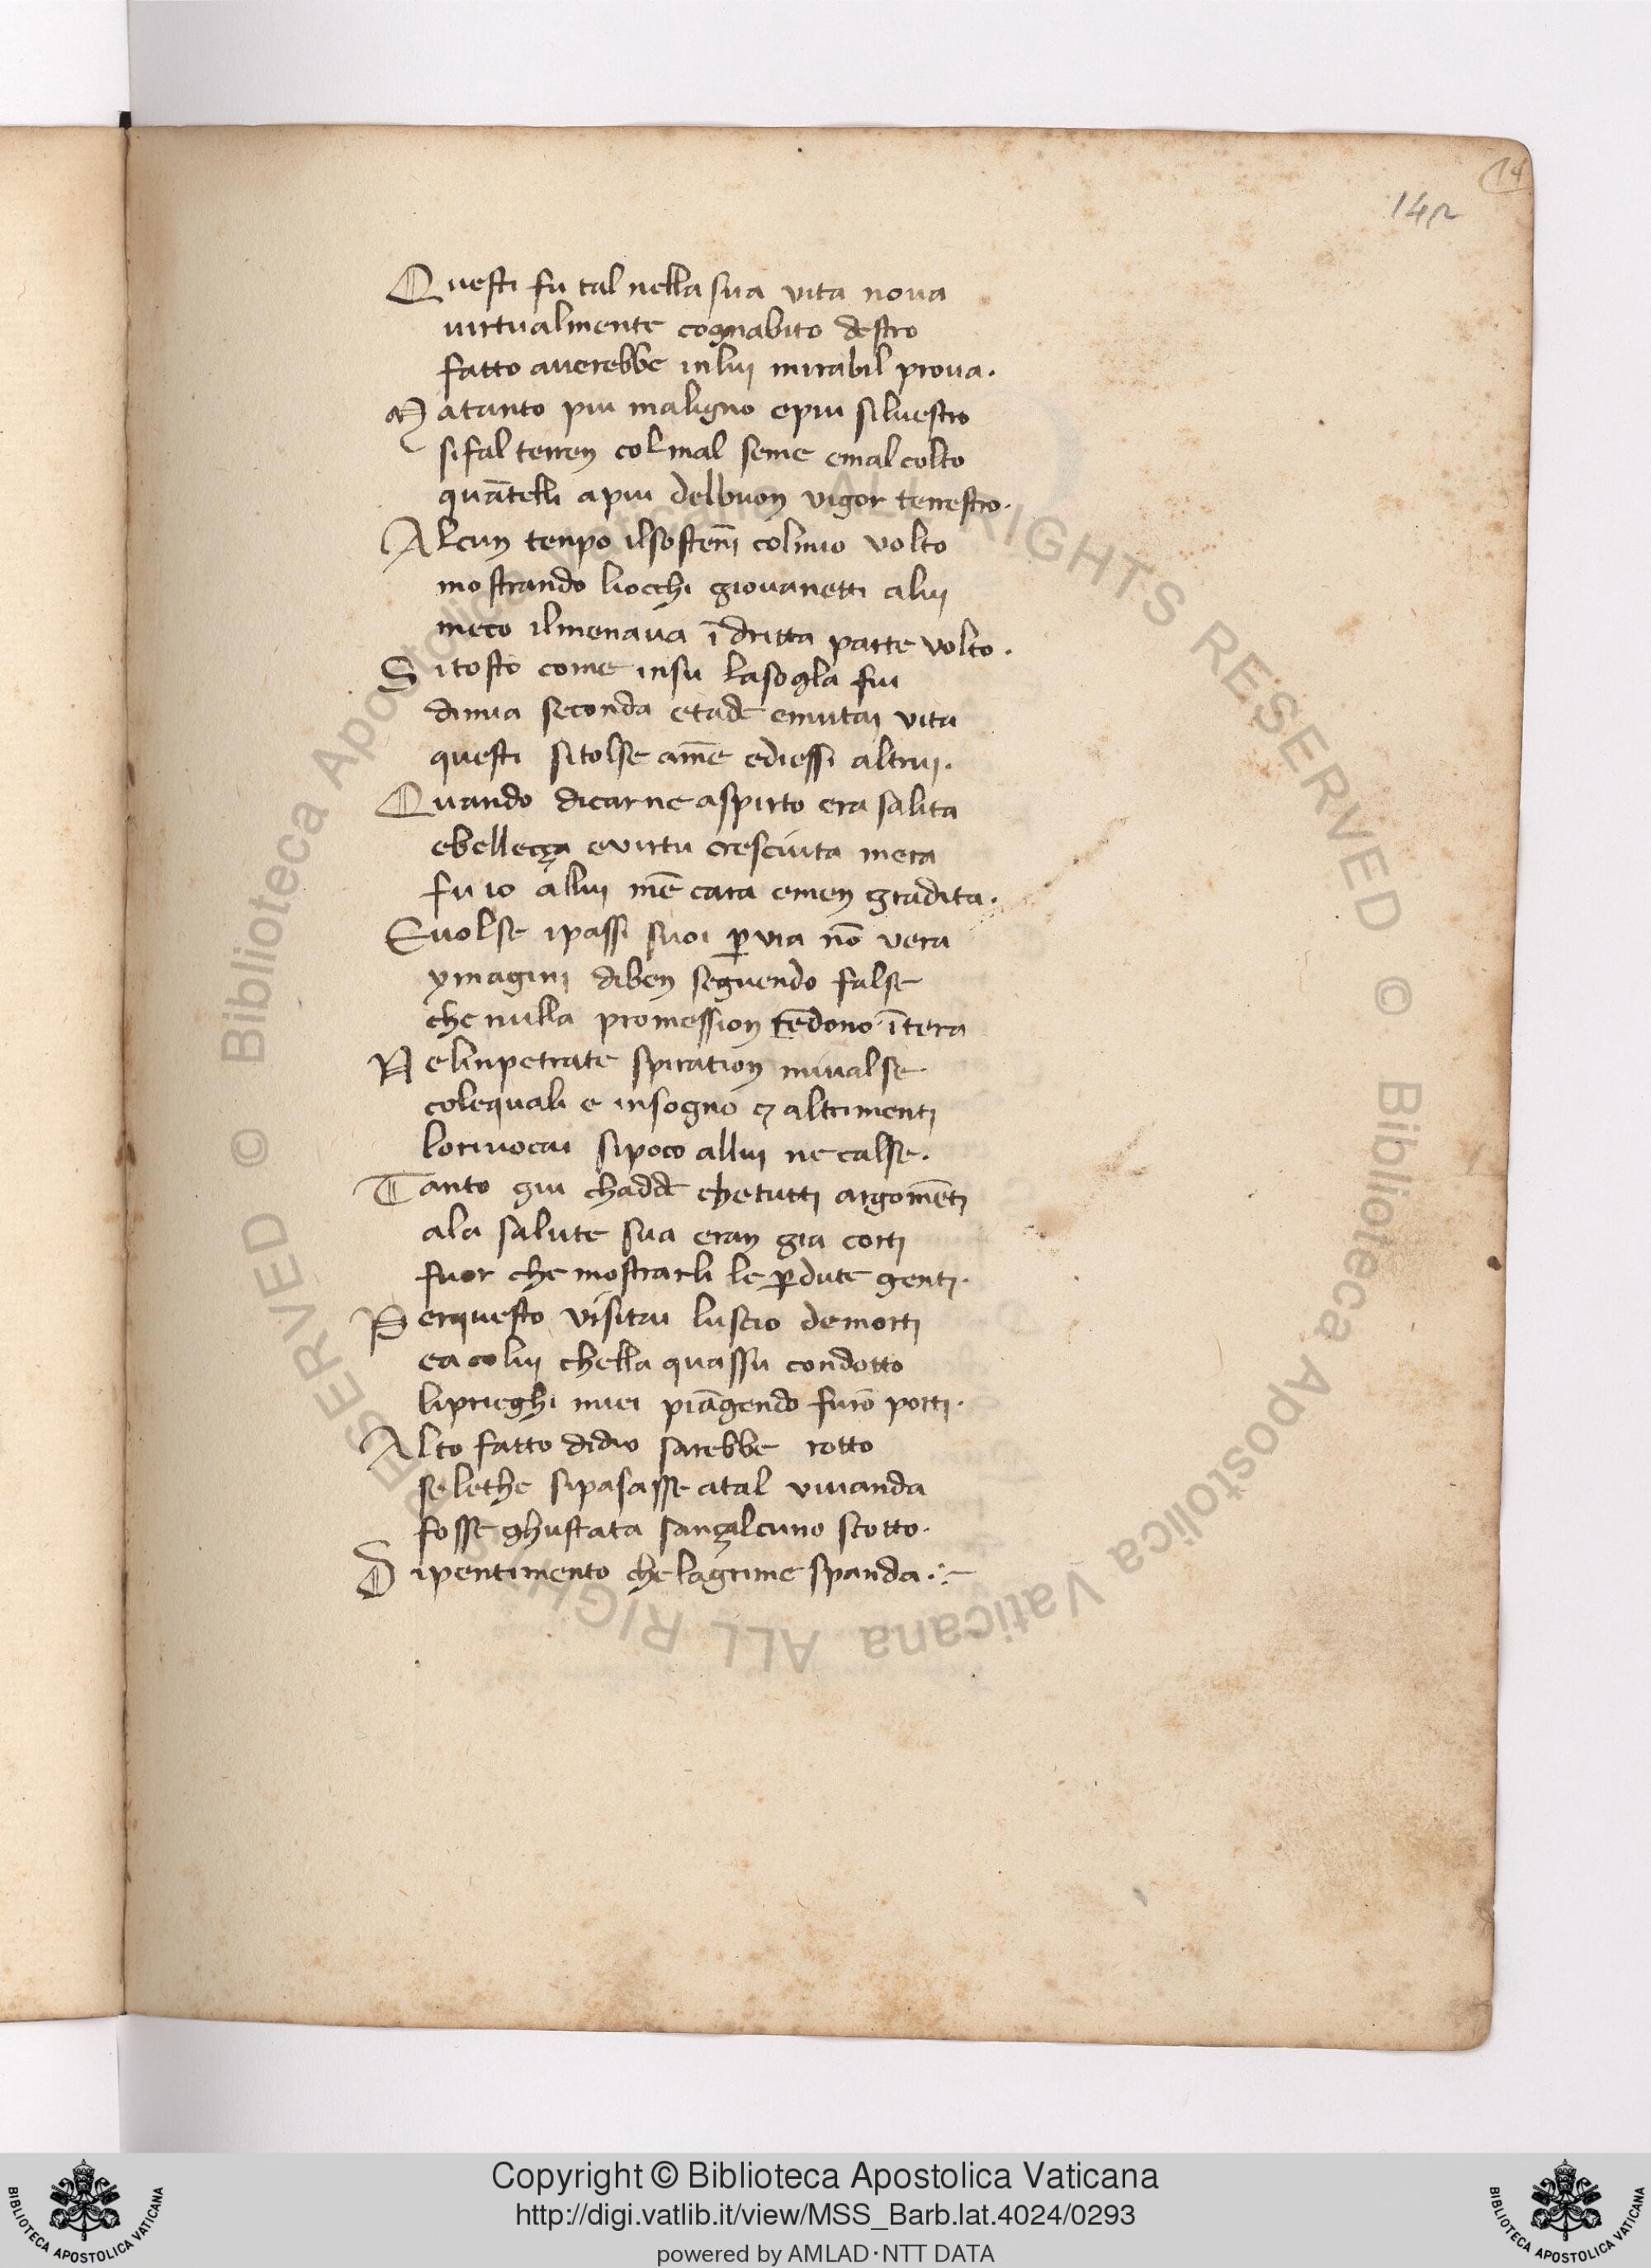 14
142
Questi fu tal nella sua vita noua
uirtualmente cognabito destro
fatto auerebbe inluj mirabil proua.
Matanto piu maligno epiu siluestro
sifal terren colmal seme emalcolto
quãtelli apiu delbuon vigor terrestro.
Alcun tenpo ilsostenni colmio volto
mostrando liocchi giouanetti aluj
meco ilmenaua ĩ dritta parte volto.
Sitosto come insu lasogla fui
dimia seconda etade emutai vita
questi sitolse amẽ ediessi altruj.
Quando dicarne aspirto era salita
ebelleçça evirtu cresciuta mera
fu io alluj mẽ cara emen gradita.
Euolse ipassi suoi ꝑvia nõ vera
ymagini diben seguendo false
che nulla promession rẽdono ĩtera
Nelinpetrate spiration miualse
colequali e insogno ⁊ altrimenti
loriuocai sipoco alluj ne calse.
Tanto giu chadde chetutti argomẽti
ala salute sua eran gia corti
fuor che mostrarli le ꝑdute genti.
Perquesto visitai luscio demorti
ea coluj chella quassu condotto
liprieghi miei piãgendo furõ porti.
Alto fatto didio sarebbe rotto
selethe sipasasse atal viuanda
fosse ghustata sançalcuno scotto.
Dipentimento chelagrime spanda.
© Biblioteca Apostolica Vaticana ALL RIGHTS RESERVED
© Biblioteca Apostolica Vaticana ALL RIGHTS RESERVED
BIBLIOTECA APOSTOLICA VATICANA
Copyright © Biblioteca Apostolica Vaticana
http://digi.vatlib.it/view/MSS_Barb.lat.4024/0293
powered by AMLAD·NTT DATA
BIBLIOTECA APOSTOLICA VATICANA